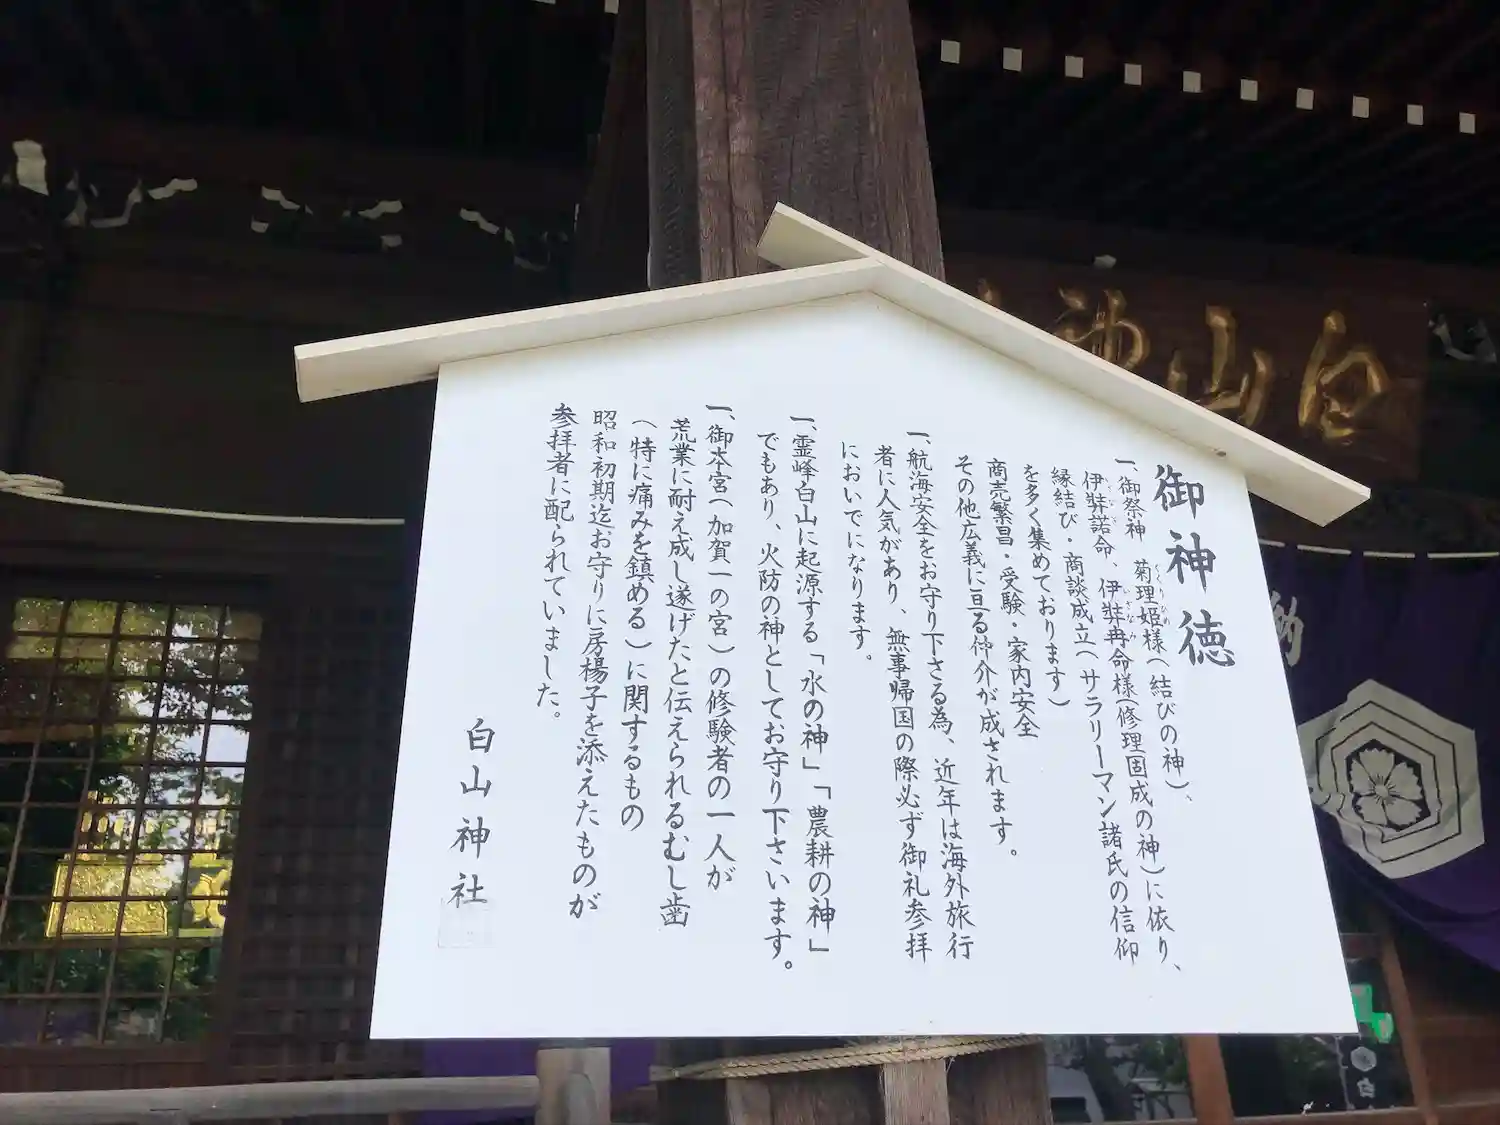 御神徳
一、御祭神　菊理姫様(結びの神)、
伊弉諾命、伊弉冉命様(修理固成の神)に依り、
縁結び・商談成立(サラリーマン諸氏の信仰
を多く集めております)
商売繁昌・受験・家内安全
その他広義に亘る仲介が成されます。
一、航海安全をお守り下さる為、近年は海外旅行
者に人気があり、無事帰国の際必ず御礼参拝
においでになります。
一、霊峰白山に起源する「水の神」「農耕の神」
でもあり、火防の神としてお守り下さいます。
一、御本宮(加賀一の宮)の修験者の一人が
荒業に耐え成し遂げたと伝えられるむし歯
(特に痛みを鎮める)に関するもの
昭和初期迄お守りに房楊子を添えたものが
参拝者に配られていました。
白山神社
白山神
納
白